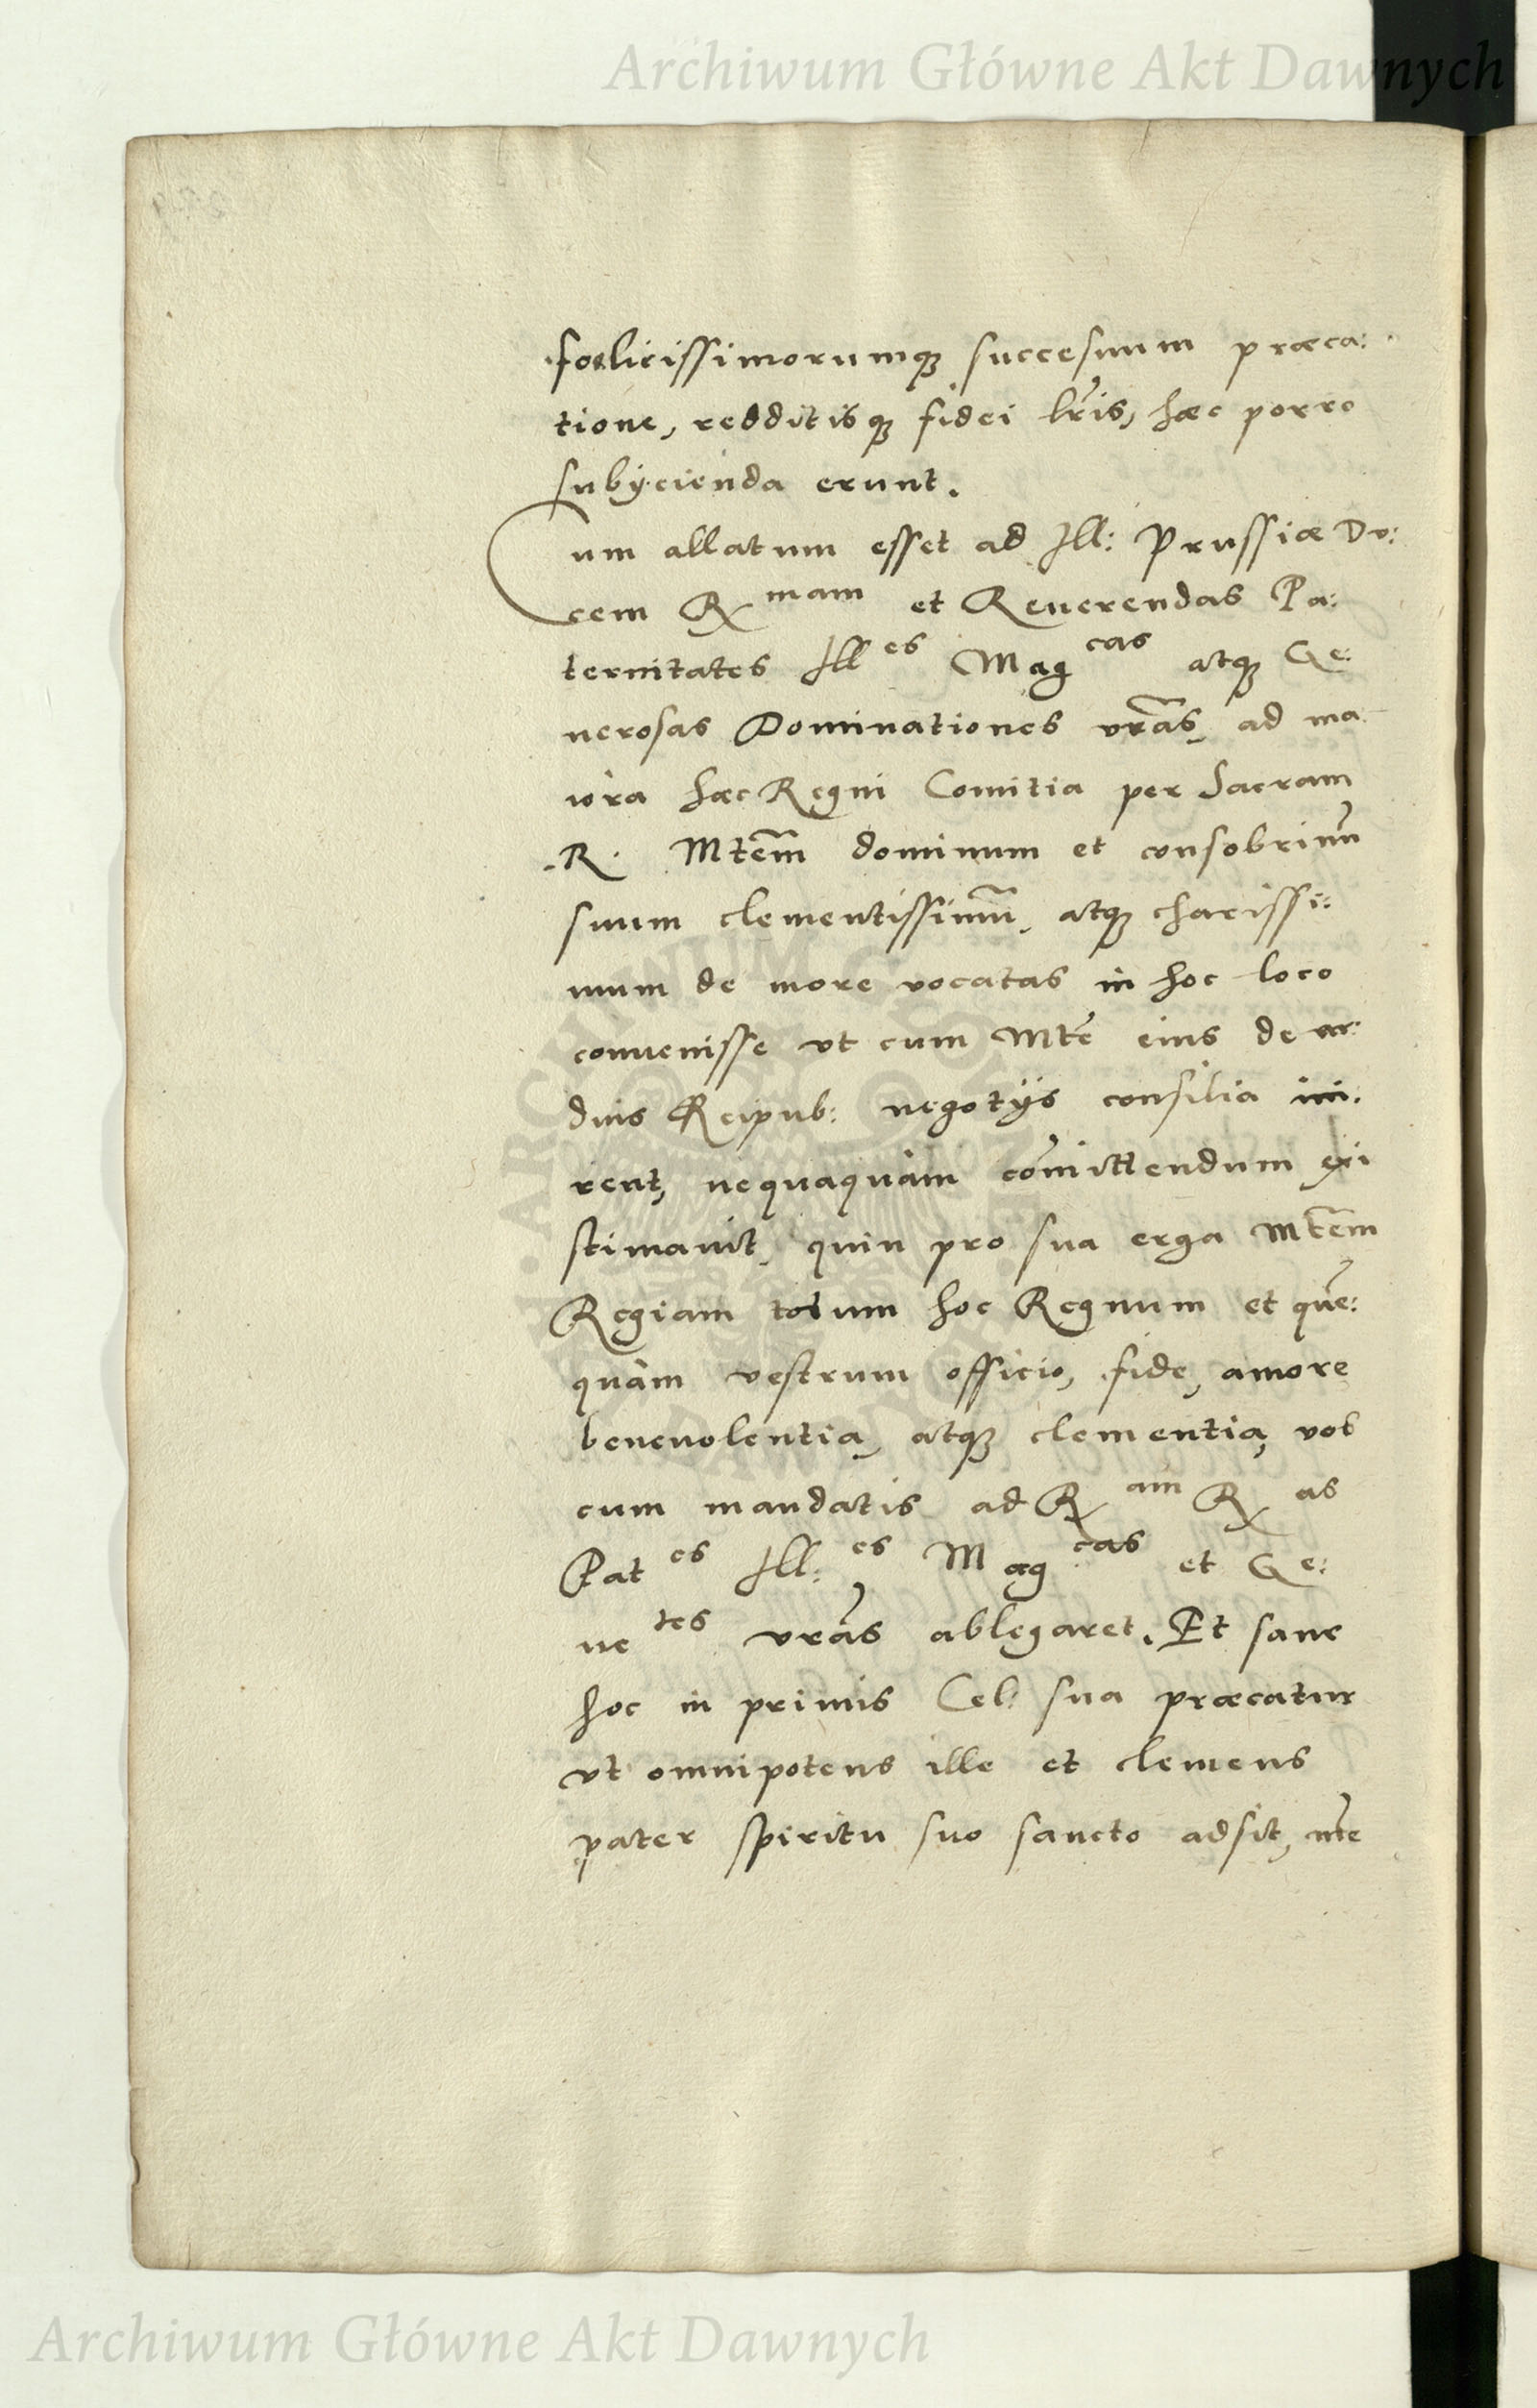 Archiwum Główne Akt Dawnych
foelicissimorumq; succesuum præca:
tione, redditisq; fidei lr̃is, hæc porro
subycienda erunt.
Cum allatum esset ad Ill: Prussiæ Du:
cem R mam et Reuerendas Pa:
ternitates Ill es Mag cas atq; Ge:
nerosas Dominationes vrãs, ad ma
iora hæc Regni Comitia per Sacram
R. Mtẽm dominum et consobrinũ
suum clementissimũ, atq; charissi:
mum de more vocatas in hoc loco
conuenisse vt cum Mtẽ eius de ar:
duis Reipub: negotÿs consilia ini:
rent, nequaquàm cõmittendum exi
stimauit, quin pro sua erga Mtẽm
Regiam totum hoc Regnum et quẽ:
quàm vestrum officio, fide, amore
beneuolentia, atq; clementia, vos
cum mandatis ad R am R as
Pat es Ill: es Mag cas et Ge:
ne tes vrãs ablegaret. Et sane
hoc in primis Cel: sua præcatur
vt omnipotens ille et clemens
pater spiritu suo sancto adsit, mẽte
Archiwum Główne Akt Dawnych